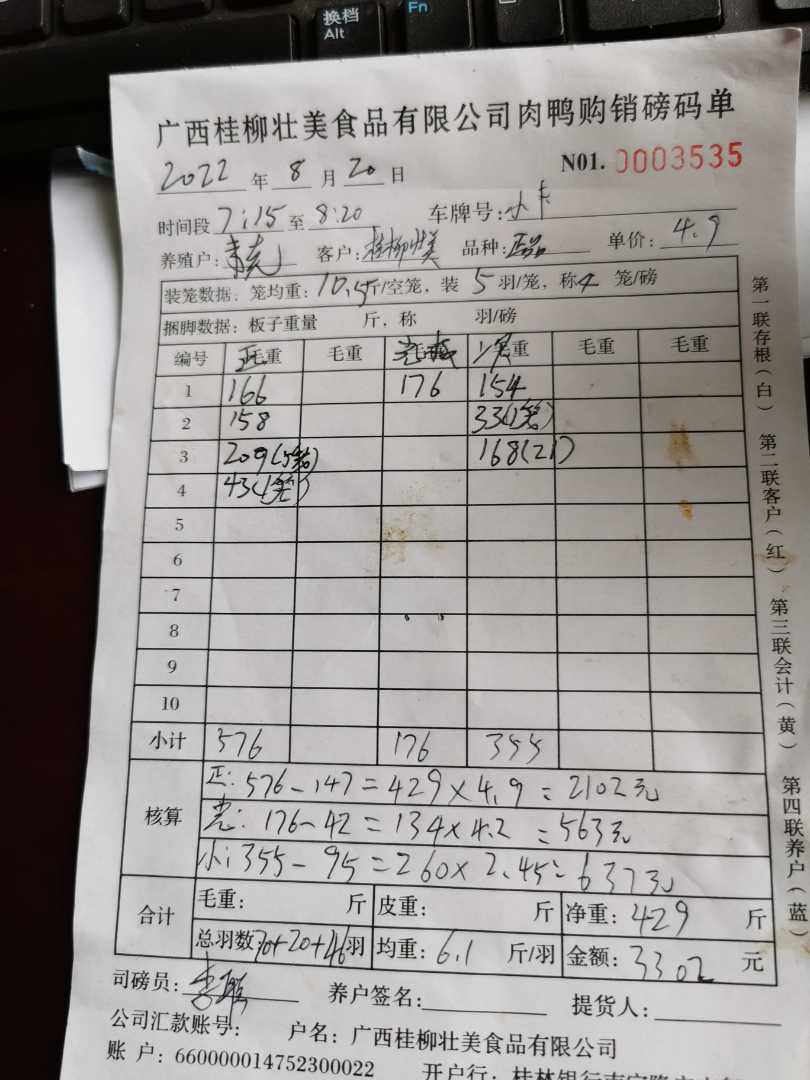 换档
Alt
Fn
广西桂柳壮美食品有限公司肉鸭购销磅码单
2022 年 8 月 20 日 N01. 0003535
时间段 7:15 至 8:20 车牌号: 小卡
养殖户: 客户: 桂柳壮美 品种: 单价: 4.9
装笼数据: 笼均重: 10.5 斤/空笼, 装 5 羽/笼, 称 4 笼/磅
捆脚数据: 板子重量 斤, 称 羽/磅
编号 正 毛重 毛重 毛重 小 毛重 毛重 毛重
1 166 176 154
2 158 33(1笼)
3 209(5笼) 168(21)
4 43(1笼)
5
6
7
8
9
10
小计 576 176 355
核算
正: 576-147=429×4.9=2102元
176-42=134×4.2=563元
小: 355-95=260×2.45=637元
合计
毛重: 斤 皮重: 斤 净重: 429 斤
总羽数 70+20+46 羽 均重: 6.1 斤/羽 金额: 3302 元
司磅员: 养户签名: 提货人:
公司汇款账号: 户名: 广西桂柳壮美食品有限公司
账 户: 660000014752300022 开户行: 桂林银行南宁
第一联存根(白) 第二联客户(红) 第三联会计(黄) 第四联养户(蓝)